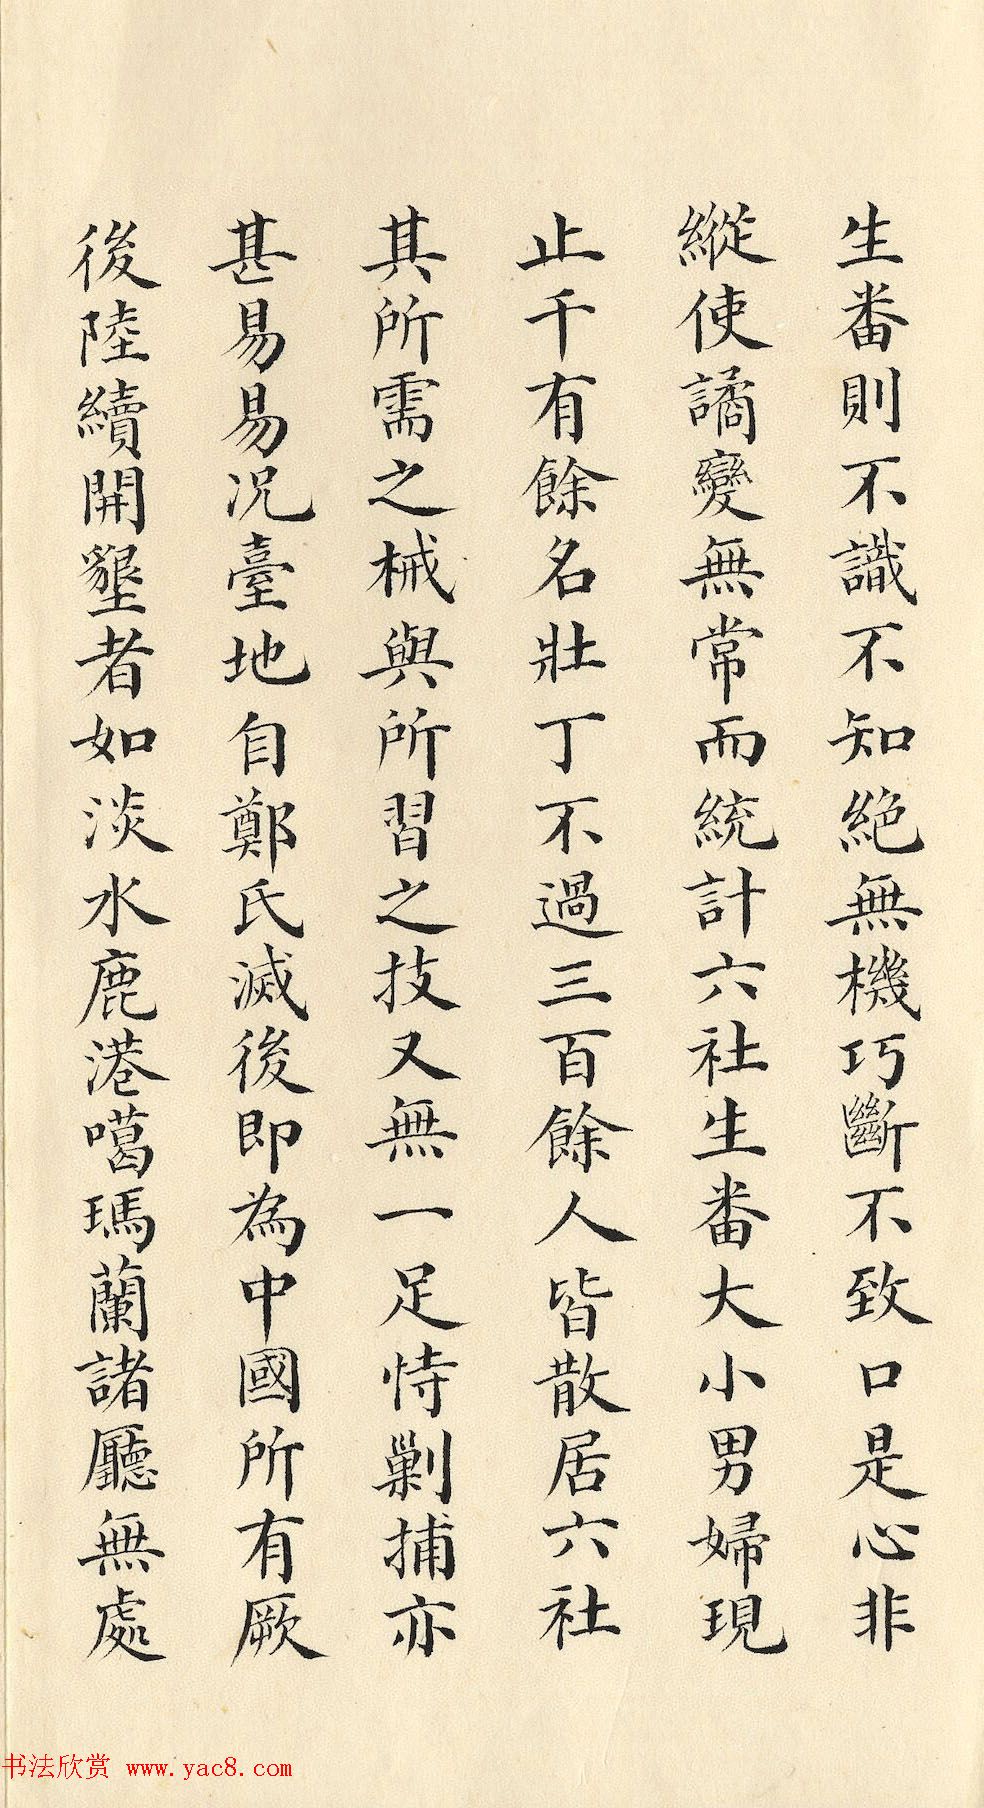 生番則不識不知絕無機巧斷不致口是心非
縱使譎變無常而統計六社生番大小男婦現
止千有餘名壯丁不過三百餘人皆散居六社
其所需之械與所習之技又無一足恃剿捕亦
甚易易况臺地自鄭氏滅後即為中國所有厥
後陸續開墾者如淡水鹿港噶瑪蘭諸廳無處
书法欣赏 www.yac8.com